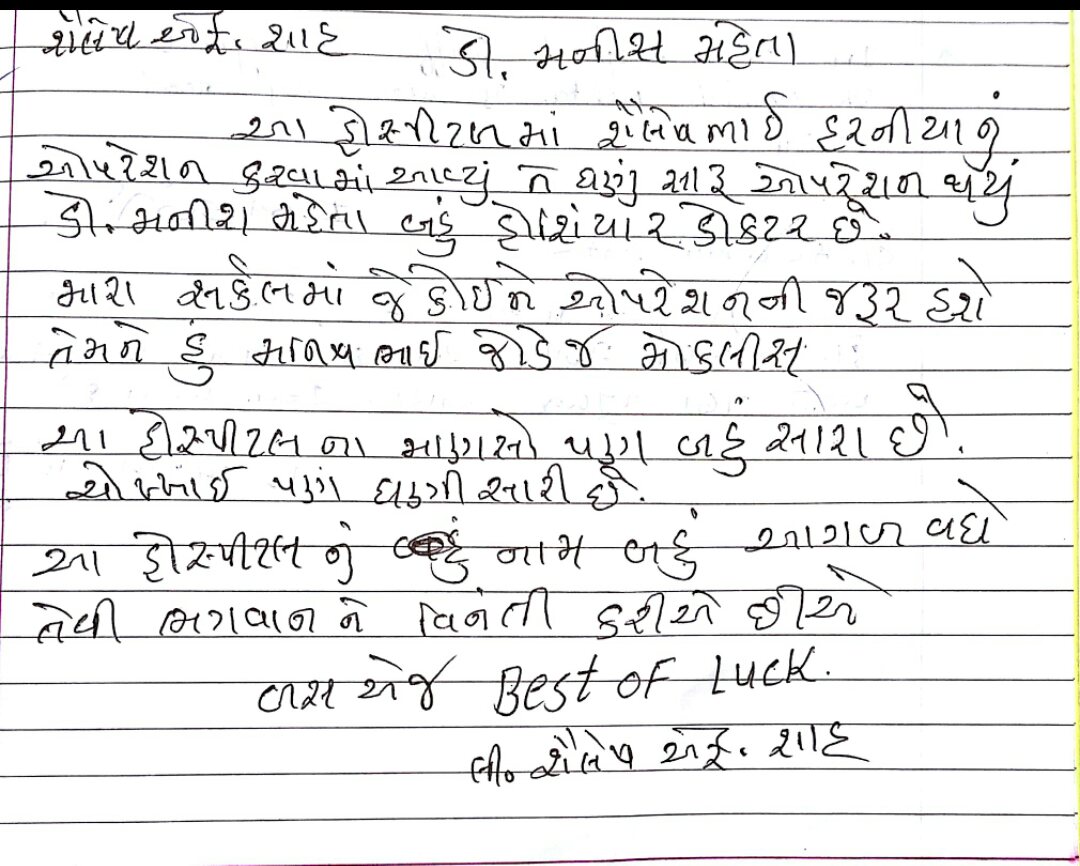 શૈલેષ એફ. શાહ ડો. મનીષ મહેતા
આ હોસ્પીટલમાં શૈલેષભાઈ હરનીયાનું
ઓપરેશન કરવામાં આવ્યું તે ઘણું સારૂ ઓપરેશન થયું
ડો. મનીશ મહેતા બહું હોશિયાર ડોકટર છે.
મારા સર્કલમાં જે કોઈને ઓપરેશનની જરૂર હશે
તેમને હું મનિષભાઈ જોડે જ મોકલીસ
આ હોસ્પીટલના માણસો પણ બહું સારા છે.
ચોખ્ખાઈ પણ ઘણી સારી છે.
આ હોસ્પીટલનું નામ બહું આગળ વધે
તેવી ભગવાનને વિનંતી કરીએ છીએ
બસ એજ Best OF Luck.
લી. શૈલેષ એફ. શાહ